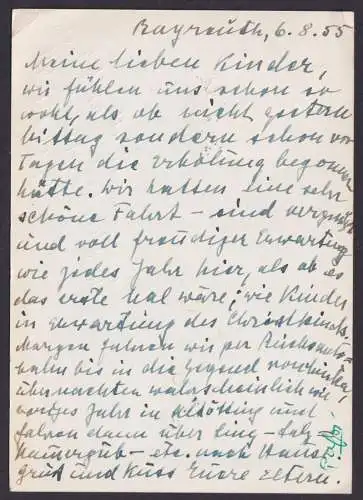 Bayreuth, 6.8.55
Meine lieben Kinder,
wir fühlen uns schon so
wohl, als ob nicht gestern
Mittag sondern schon vor
Tagen die Erholung begonnen
hätte. Wir hatten eine sehr
schöne Fahrt – sind vergnügt
und voll freudiger Erwartung
wie jedes Jahr hier, als ob es
das erste Mal wäre; wie Kinder
in Erwartung des Christkinds.
Morgen fahren wir per Reichsauto=
bahn bis in die Gegend von
übernachten wahrscheinlich wie
voriges Jahr in Altötting und
fahren dann über Linz – Salz
etc. nach Hause
Gruß und Kuss Eure Eltern.